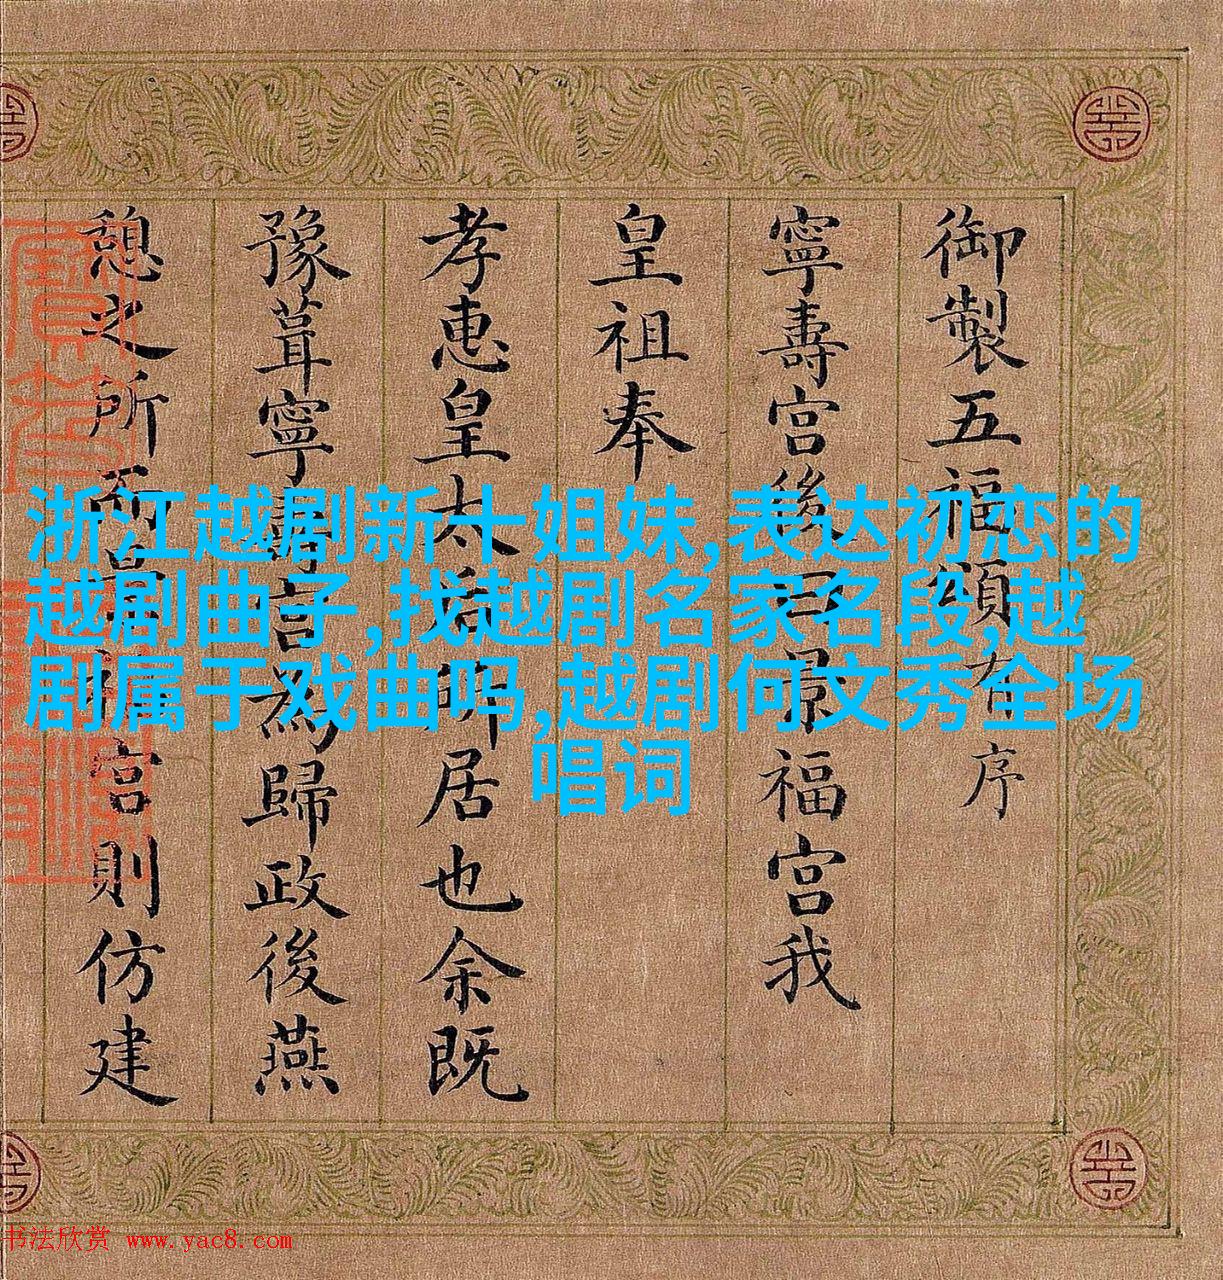 御製五福頌有序
寧壽宮後曰景福宮我
皇祖奉
孝惠皇太后所居也余既
豫葺寧壽宮為歸政後燕
憩之所而景福宮則仿建
浙江越剧新十姐妹,表达初恋的
越剧曲子,找越剧名家名段,越
剧属于戏曲吗,越剧何文秀全场
唱词
书法欣赏 www.yac8.com